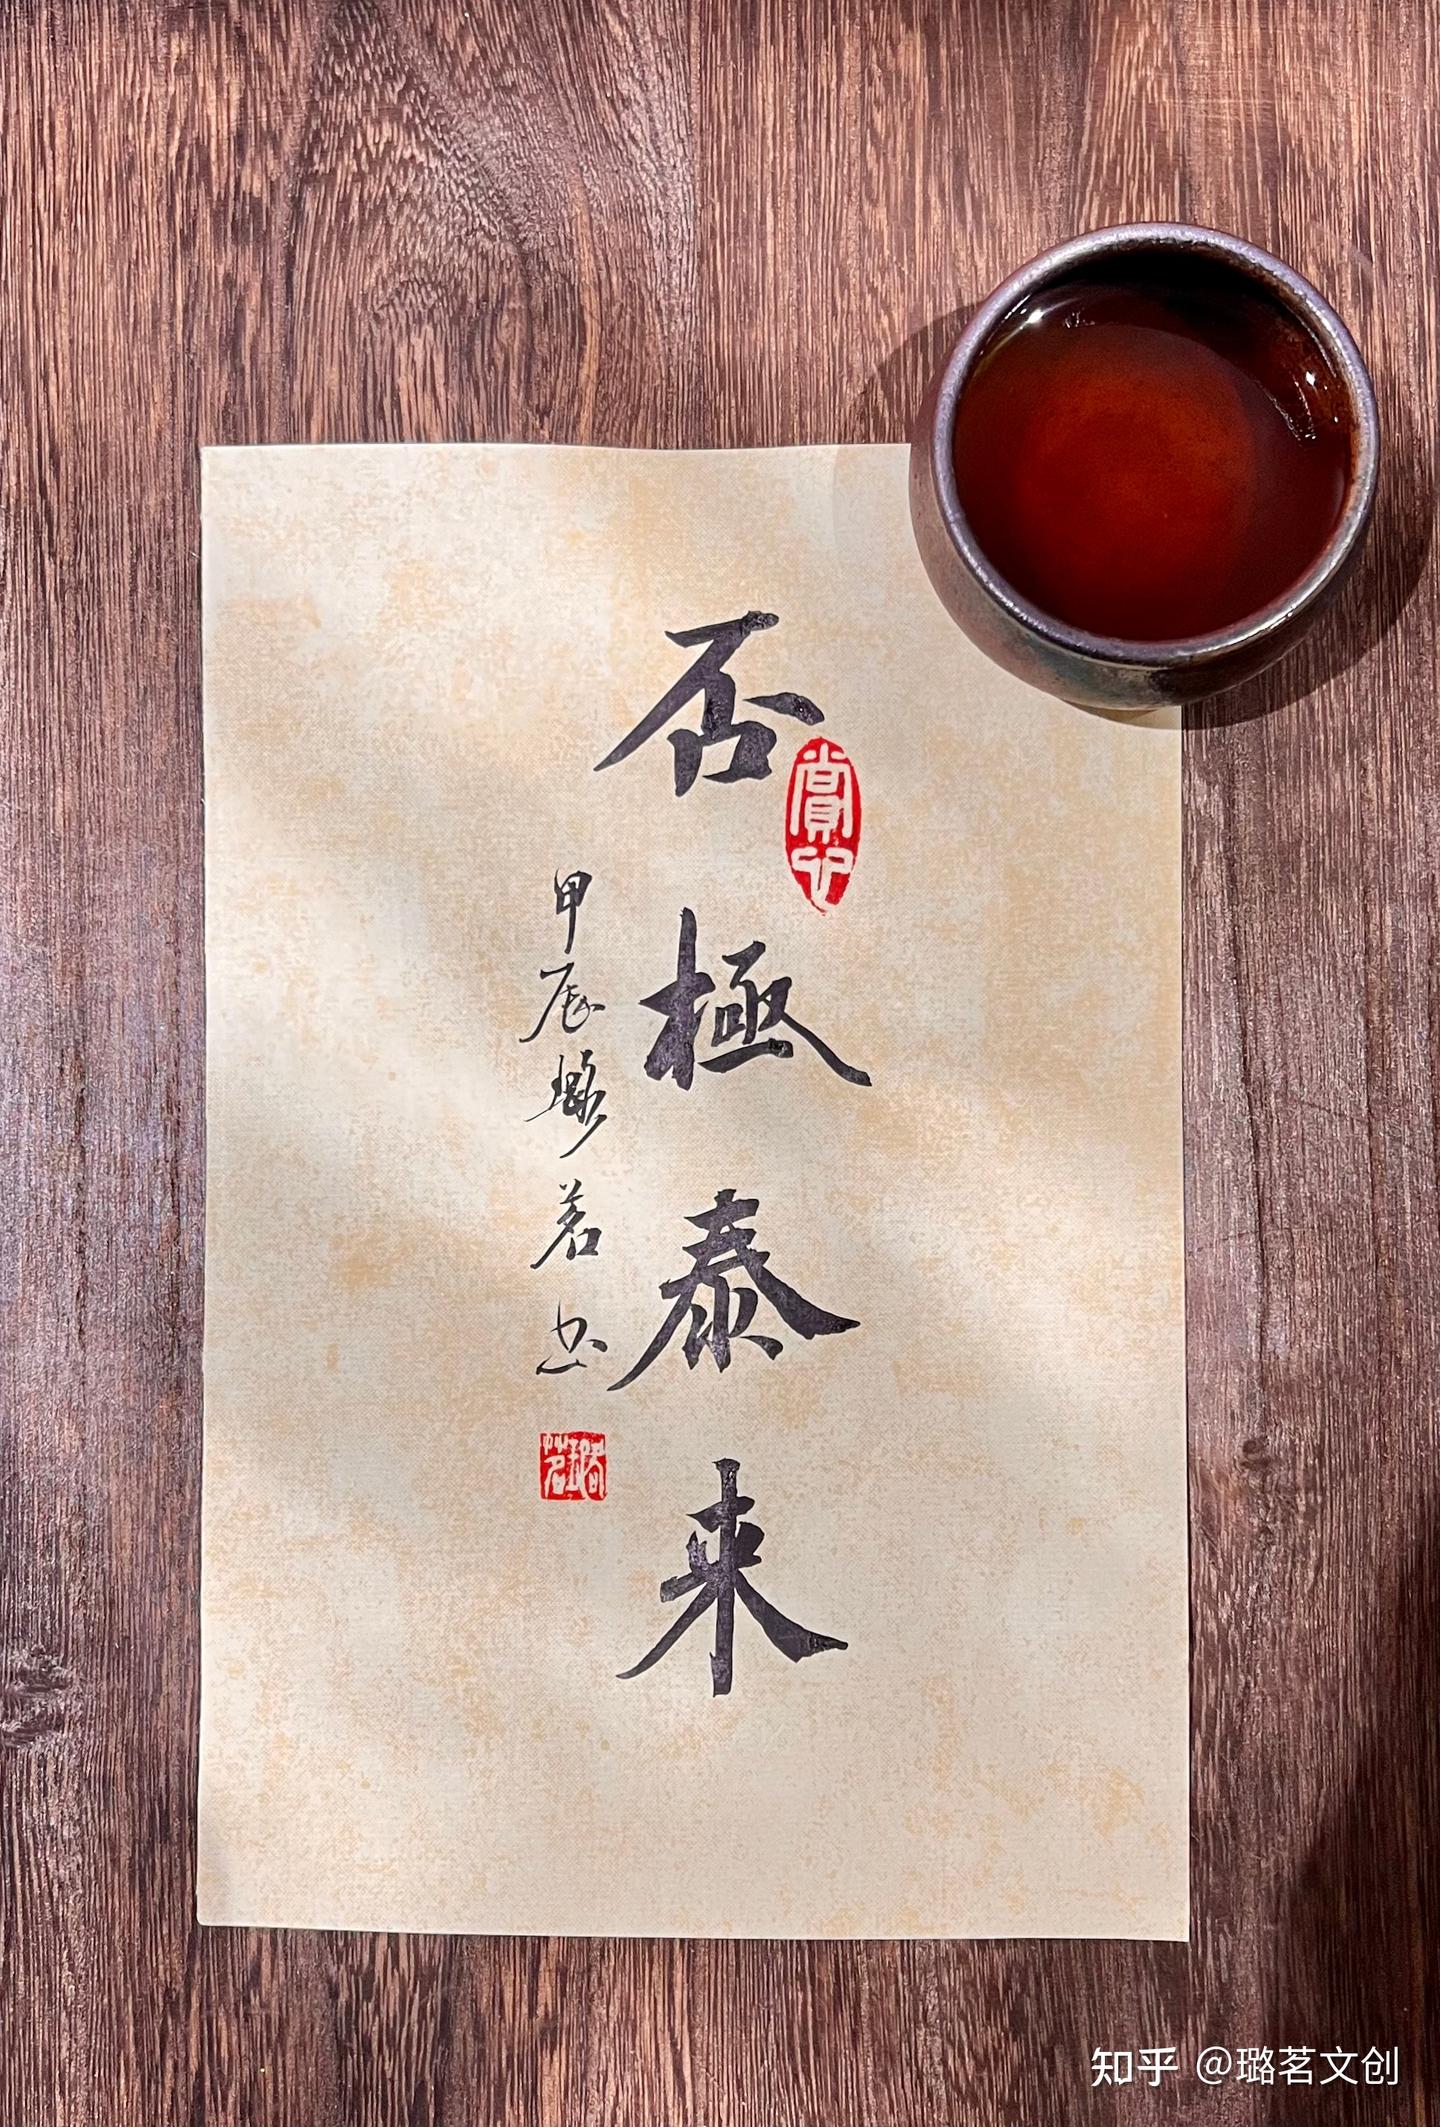 否極泰來
甲辰璐茗书
賞心
璐茗
知乎 @璐茗文创